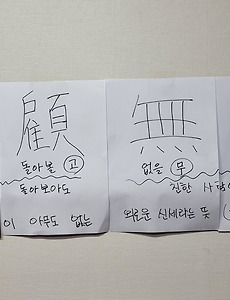 顧
돌아볼 고
돌아보아도
이 아무도 없는
無
없을 무
친한 사람
외로운 신세라는 뜻